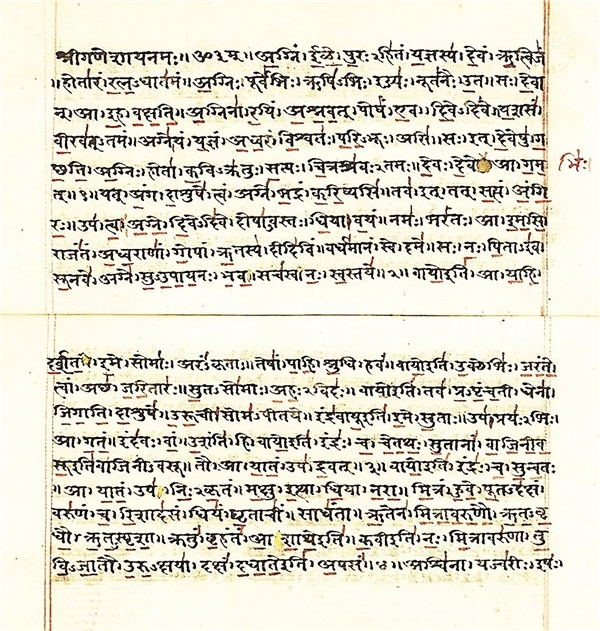 श्रीगणेशायनमः॥ॐ३म्॥अग्निं।ईळे।पुरःऽहितं।यज्ञस्य।देवं।ऋत्विजं
।होतारं।रत्नऽधातमं॥अग्निः।पूर्वेभिः।ऋषिऽभिः।ईड्यः।नूतनैः।उत।सः।देवा
न्।आ।इह।वक्षति॥अग्निना।रयिं।अश्नवत्।पोषं।एव।दिवेऽदिवे।यशसं
वीरवत्ऽतमं॥अग्ने।यं।यज्ञं।अध्वरं।विश्वतः।परिऽभूः।असि।सः।इत्।देवेषु।ग
च्छति॥अग्निः।होता।कविऽक्रतुः।सत्यः।चित्रश्रवःऽतमः।देवः।देवे।आ।गम भिः
त्॥१॥यत्।अंग।दाशुषे।त्वं।अग्ने।भद्रं।करिष्यसि।तव।इत्।तत्।सत्यं।अंगि
रः॥उप।त्वा।अग्ने।दिवेऽदिवे।दोषाऽवस्तः।धिया।वयं।नमः।भरंतः।आ।इमसि॥
राजंतं।अध्वराणां।गोपां।ऋतस्य।दीदिविं।वर्धमानं।स्वे।दमे॥सः।नः।पिताऽइव
सूनवे।अग्ने।सुऽउपायनः।भव।सचस्व।नः।स्वस्तये॥२॥वायोइति।आ।याहि।
दर्शत।इमे।सोमाः।अरंऽकृताः।तेषां।पाहि।श्रुधि।हवं॥वायोइति।उक्थेभिः।जरंते।
त्वां।अच्छ।जरितारः।सुतऽसोमाः।अहःऽविदः॥वायोइति।तव।प्रऽपृंचती।धेना।
जिगाति।दाशुषे।उरूची।सोमऽपीतये॥इंद्रवायूइति।इमे।सुताः।उप।प्रयःऽभिः।
आ।गतं।इंदवः।वां।उशंति।हि॥वायोइति।इंद्रः।च।चेतथः।सुतानां।वाजिनीव
सूइतिवाजिनीऽवसू।तौ।आ।यातं।उप।द्रवत्॥३॥वायोइति।इंद्रः।च।सुन्वतः
।आ।यातं।उप।निःऽकृतं।मक्षु।इत्था।धिया।नरा॥मित्रं।हुवे।पूतऽदक्षं।
वरुणं।च।रिशादसं।धियं।घृताचीं।साधंता॥ऋतेन।मित्रावरुणौ।ऋतऽवृ
धौ।ऋतऽस्पृशा।क्रतुं।बृहंतं।आशाथेइति॥कवीइति।नः।मित्रावरुणा।तु
विऽजातौ।उरुऽक्षया।दक्षं।दधातेइति।अपसं॥४॥अश्विना।यज्वरीः।इषः।